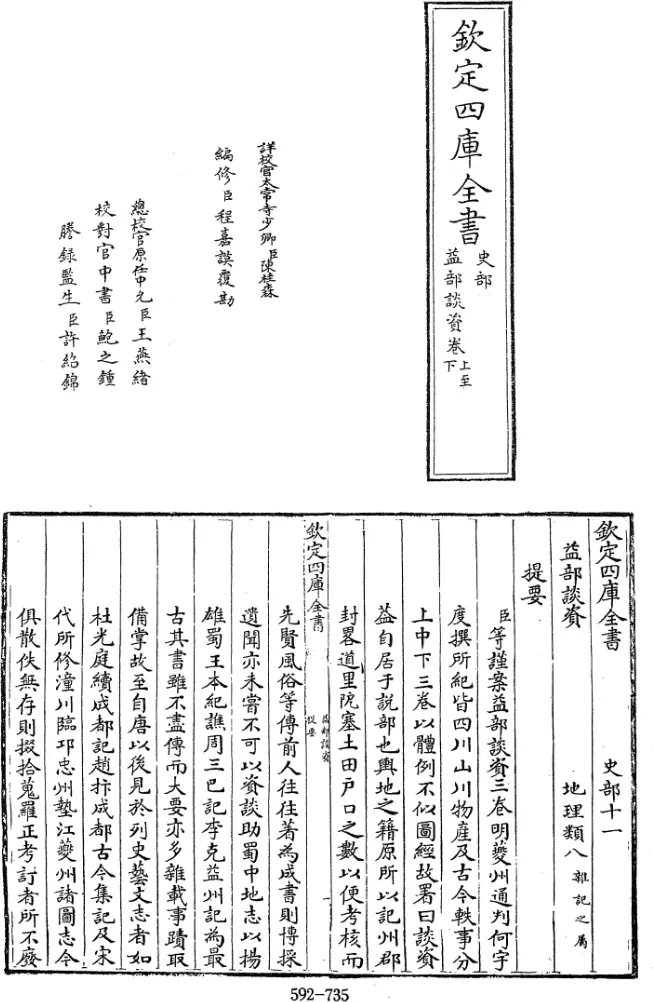 欽定四庫全書
史部
益部談資卷上至下
詳校官太常寺少卿臣陳桂森
編修臣程嘉謨覆勘
總校官原任中允臣王燕緒
校對官中書臣鮑之鍾
謄錄監生臣許紹錦
欽定四庫全書
史部十一
益部談資
地理類八雜記之屬
提要
臣等謹案益部談資三卷明夔州通判何宇
度撰所紀皆四川山川物產及古今軼事分
上中下三卷以體例不似圖經故署曰談資
葢自居于説部也輿地之籍原所以記州郡
封畧道里阨塞土田户口之數以便考核而
欽定四庫全書
益部談資
提要
一
先賢風俗等傳前人往往著為成書則博採
遺聞亦未嘗不可以資談助蜀中地志以揚
雄蜀王本紀譙周三巴記李克益州記為最
古其書雖不盡傳而大要亦多雜載事蹟取
備掌故至自唐以後見於列史藝文志者如
杜光庭續成都記趙抃成都古今集記及宋
代所修潼川臨邛忠州墊江夔州諸圖志今
俱散佚無存則掇拾蒐羅正考訂者所不廢
592-735